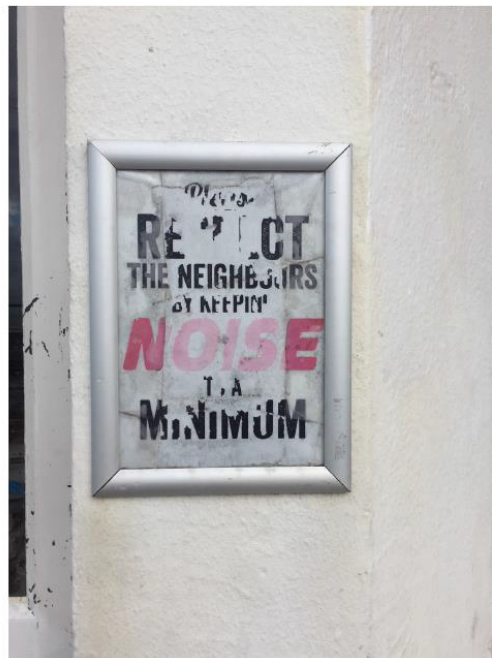 Please
RESPECT
THE NEIGHBOURS
BY KEEPIN'
NOISE
TO A
MINIMUM